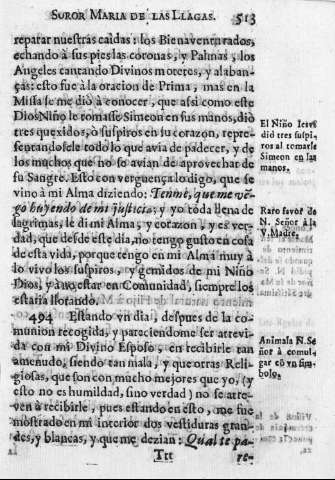 SUROR MARIA DE LAS LLAGAS. 513
reparar nuestras caìdas: los Bienaventurados,
echando à sus pies las coronas, y Palmas, los
Angeles cantando Divinos motetes, y alaban-
ças: esto fue à la oracion de Prima, mas en la
Missa se me diò à conocer, que assi como este
Dios Niño le tomasse Simeon en sus manos, diò
tres quexidos, ò suspiros en su corazon, repre-
sentandosele todo lo que avia de padecer, y de
los muchos que no se avian de aprovechar de
su Sangre. Esto con verguença lo digo, que se
vino à mi Alma diziendo: Tenme, que me vẽ-
go huyendo de mi justicia; y yo toda llena de
lagrimas, le di mi Alma, y corazon, y es ver-
dad, que desde este dia, no tengo gusto en cosa
de esta vida, porque tengo en mi Alma muy à
lo vivo los suspiros, y gemidos de mi Niño
Dios, y à no estar en Comunidad, siempre los
estaria llorando.
494 Estando vn dia, despues de la co-
munion recogida, y pareciendome ser atrevi-
da con mi Divino Esposo, en recibirle tan
amenudo, siendo tan mala, y que otras Reli-
giosas, que son con mucho mejores que yo, (y
esto no es humildad, sino verdad) no se atre-
ven à recibirle, pues estando en esto, me fue
mostrado en mi interior dos vestiduras gran-
des, y blancas, y que me dezian: Qual te pa-
Ttt re-
El Niño Iesvs
diò tres suspi-
ros al tomarle
Simeon en las
manos.
Raro favor de
N. Señor à la
V. Madre.
Animala N. Se
ñor à comul-
gar cõ vn sim-
bolo.